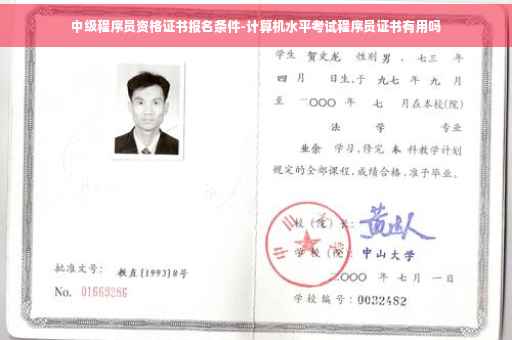 中级程序员资格证书报名条件-计算机水平考试程序员证书有用吗
学生 贺文龙 性别 男 、七三 年
四 月 日生，于 九七 年 九 月
至 二〇〇〇 年 七 月在本校(院)
法 学 专业
业余 学习，修完 本 科教学计划
规定的全部课程，成绩合格，准予毕业。
校（院）长：
学校（院）：中山大学
二〇〇〇 年 七 月 一 日
批准文号： 教直(1993)8号
No. 01669286
学校编号：0032482